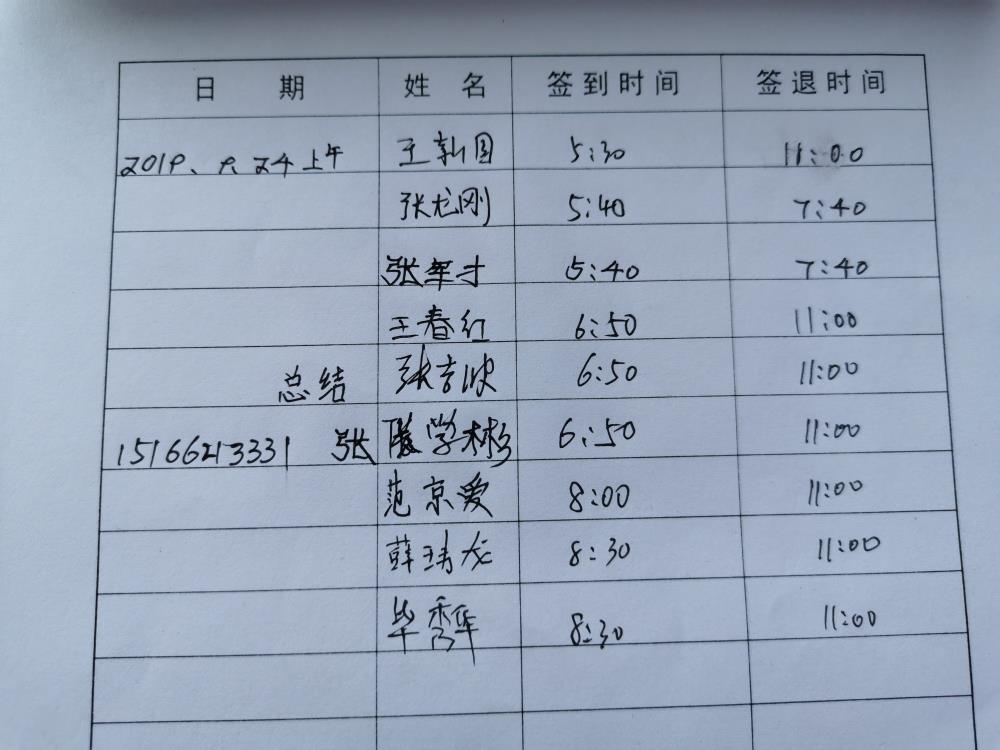 日 期 姓 名 签到时间 签退时间
2019、9、24上午 王新国 5:30 11:00
张龙刚 5:40 7:40
张军才 5:40 7:40
王春红 6:50 11:00
总结 张吉波 6:50 11:00
15166213331 张 学彬 6:50 11:00
范京爱 8:00 11:00
薛玮龙 8:30 11:00
毕秀华 8:30 11:00